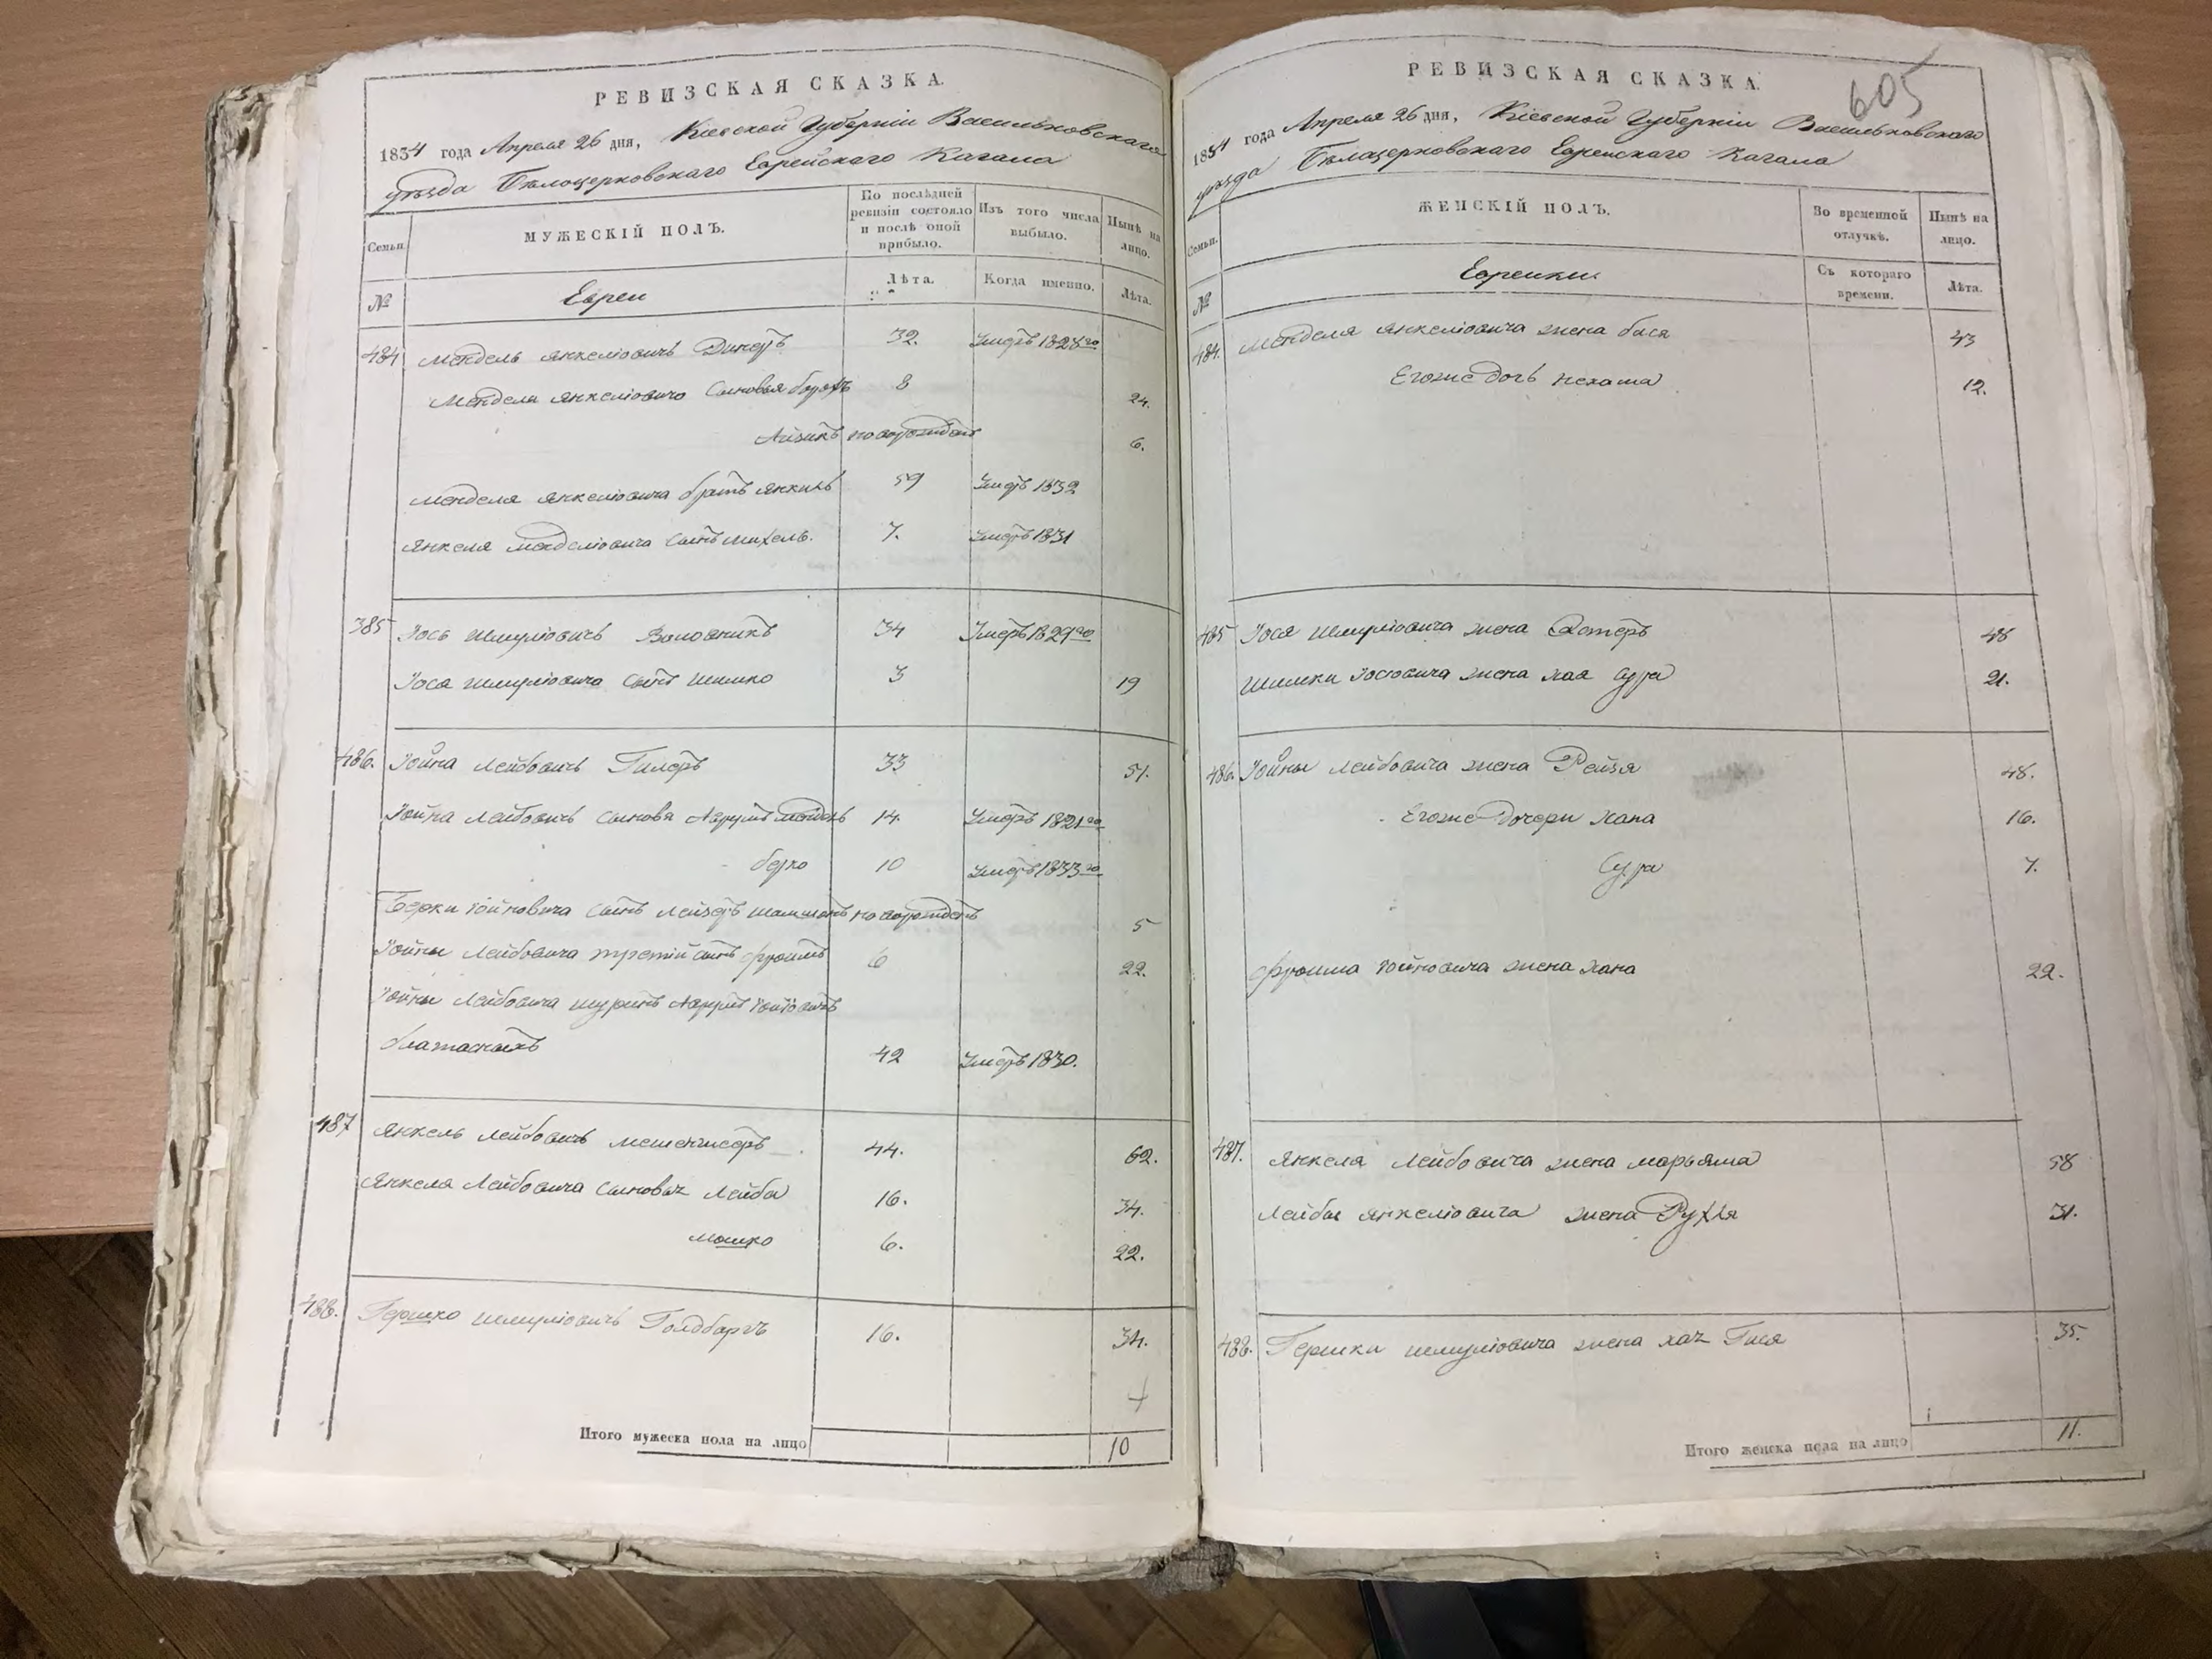 РЕВИЗСКАЯ СКАЗКА.
1834 года Апреля 26 дня, Кіевской Губерніи Васильковскаго
уезда Бѣлоцерковскаго Еврейскаго Кагала
Семьи.
МУЖЕСКІЙ ПОЛЪ.
По послѣдней ревизіи состояло и послѣ оной прибыло.
Изъ того числа выбыло.
Нынѣ на лицо.
№
Евреи
Лѣта.
Когда именно.
Лѣта.
484 Мендель Янкеліовичъ 32. Умеръ 1828го
Менделя Янкеліовича сыновья 8 24.
Айзикъ новорожденъ 6.
Менделя Янкеліовича братъ Янкель 59 Умеръ 1832
Янкеля Менделіовича сынъ Михель. 7. Умеръ 1831
385 Іось Шмуліовичъ 34 Умеръ 1829го
Іося Шмуліовича сынъ Шимко 3 19
486. Іойна Лейбовичъ Гилеръ 33 51.
Іойна Лейбовичъ сыновя 14. Умеръ 1821го
Берко 10 Умеръ 1833го
Берки Іойновича сынъ Лейзеръ новорожденъ 5
Іойны Лейбовича третій сынъ Фроимъ 6 22.
Іойны Лейбовича шуринъ
42 Умеръ 1830.
487 Янкель Лейбовичъ 44. 62.
Янкеля Лейбовича сыновья Лейба 16. 34.
Мошко 6. 22.
488. Гершко Шмуліовичъ Голдбаргъ 16. 34.
Итого мужеска пола на лицо 10
РЕВИЗСКАЯ СКАЗКА.
605
1834 года Апреля 26 дня, Кіевской Губерніи Васильковскаго
уезда Бѣлоцерковскаго Еврейскаго Кагала
Семьи.
ЖЕНСКІЙ ПОЛЪ.
Во временной отлучкѣ.
Нынѣ на лицо.
№
Еврейки
Съ котораго времени.
Лѣта.
484. Менделя Янкеліовича жена Бася 43
Егоже дочь Нехама 12.
485 Іося Шмуліовича жена Эстеръ 48
Шимки Іосіовича жена Хая Сура 21.
486. Іойны Лейбовича жена Рейзя 48.
Егоже дочери Хана 16.
Сура 7.
Фроима Іойновича жена Хана 22.
487. Янкеля Лейбовича жена Марьяма 58
Лейбы Янкеліовича жена Рухля 31.
488. Гершки Шмуліовича жена Хая Гися 35.
Итого женска пола на лицо 11.